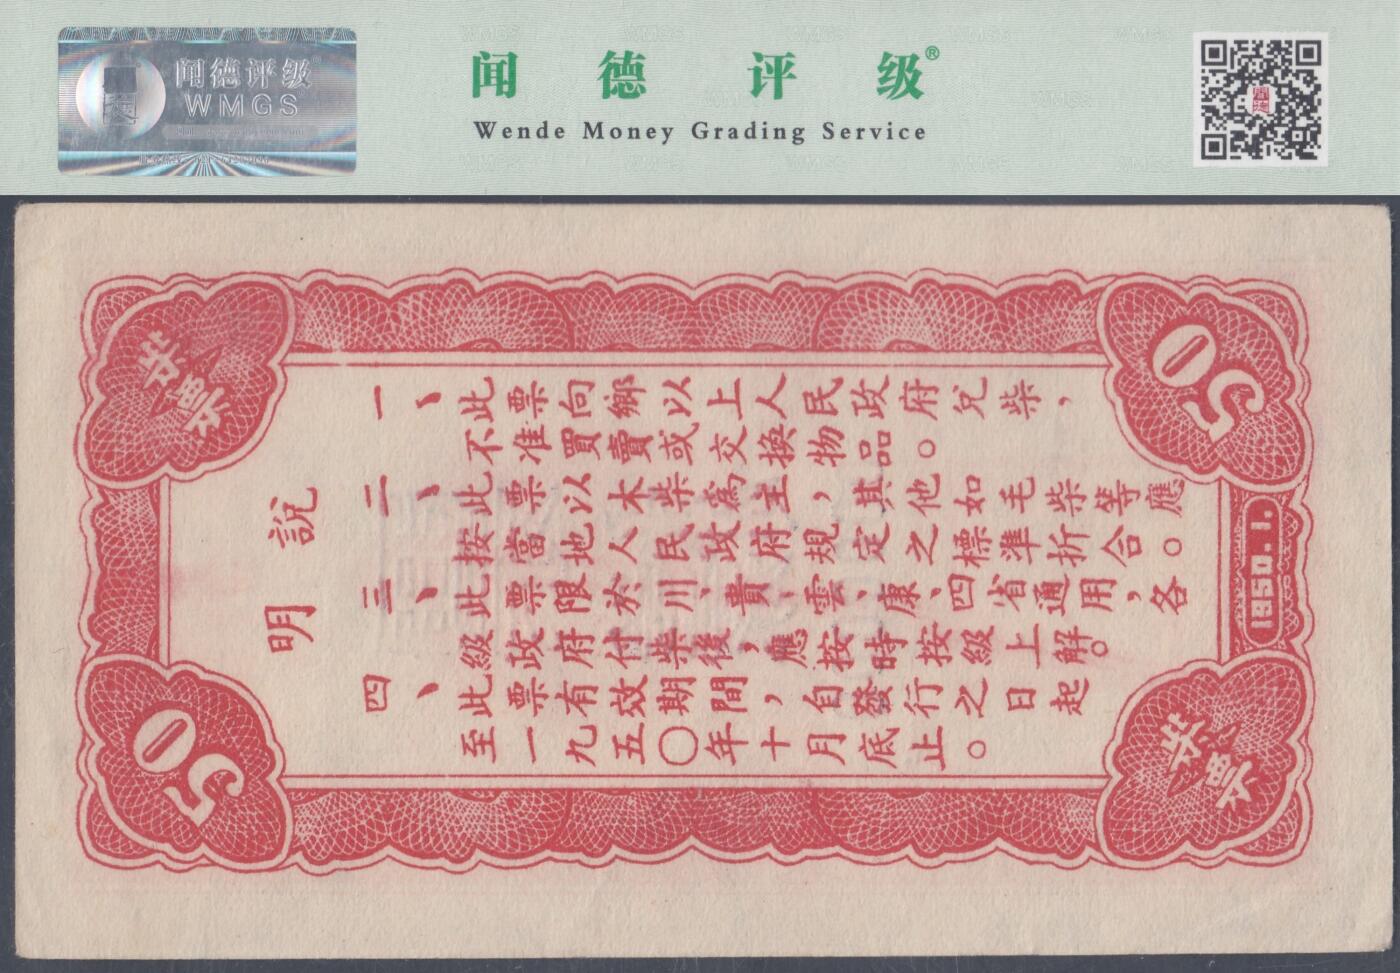 闻德评级
WMGS
闻德评级®
Wende Money Grading Service
說明
一、此票向鄉以上人民政府兌柴，
不准買賣或交換物品。
二、此票以木柴爲主，其他如毛柴等應
按當地人民政府規定之標準折合。
三、此票限於川、貴、雲、康、四省通用，各
級政府付柴後，應按時按級上解。
四、此票有效期間，自發行之日起
至一九五〇年十月底止。
50
50
1950.1.